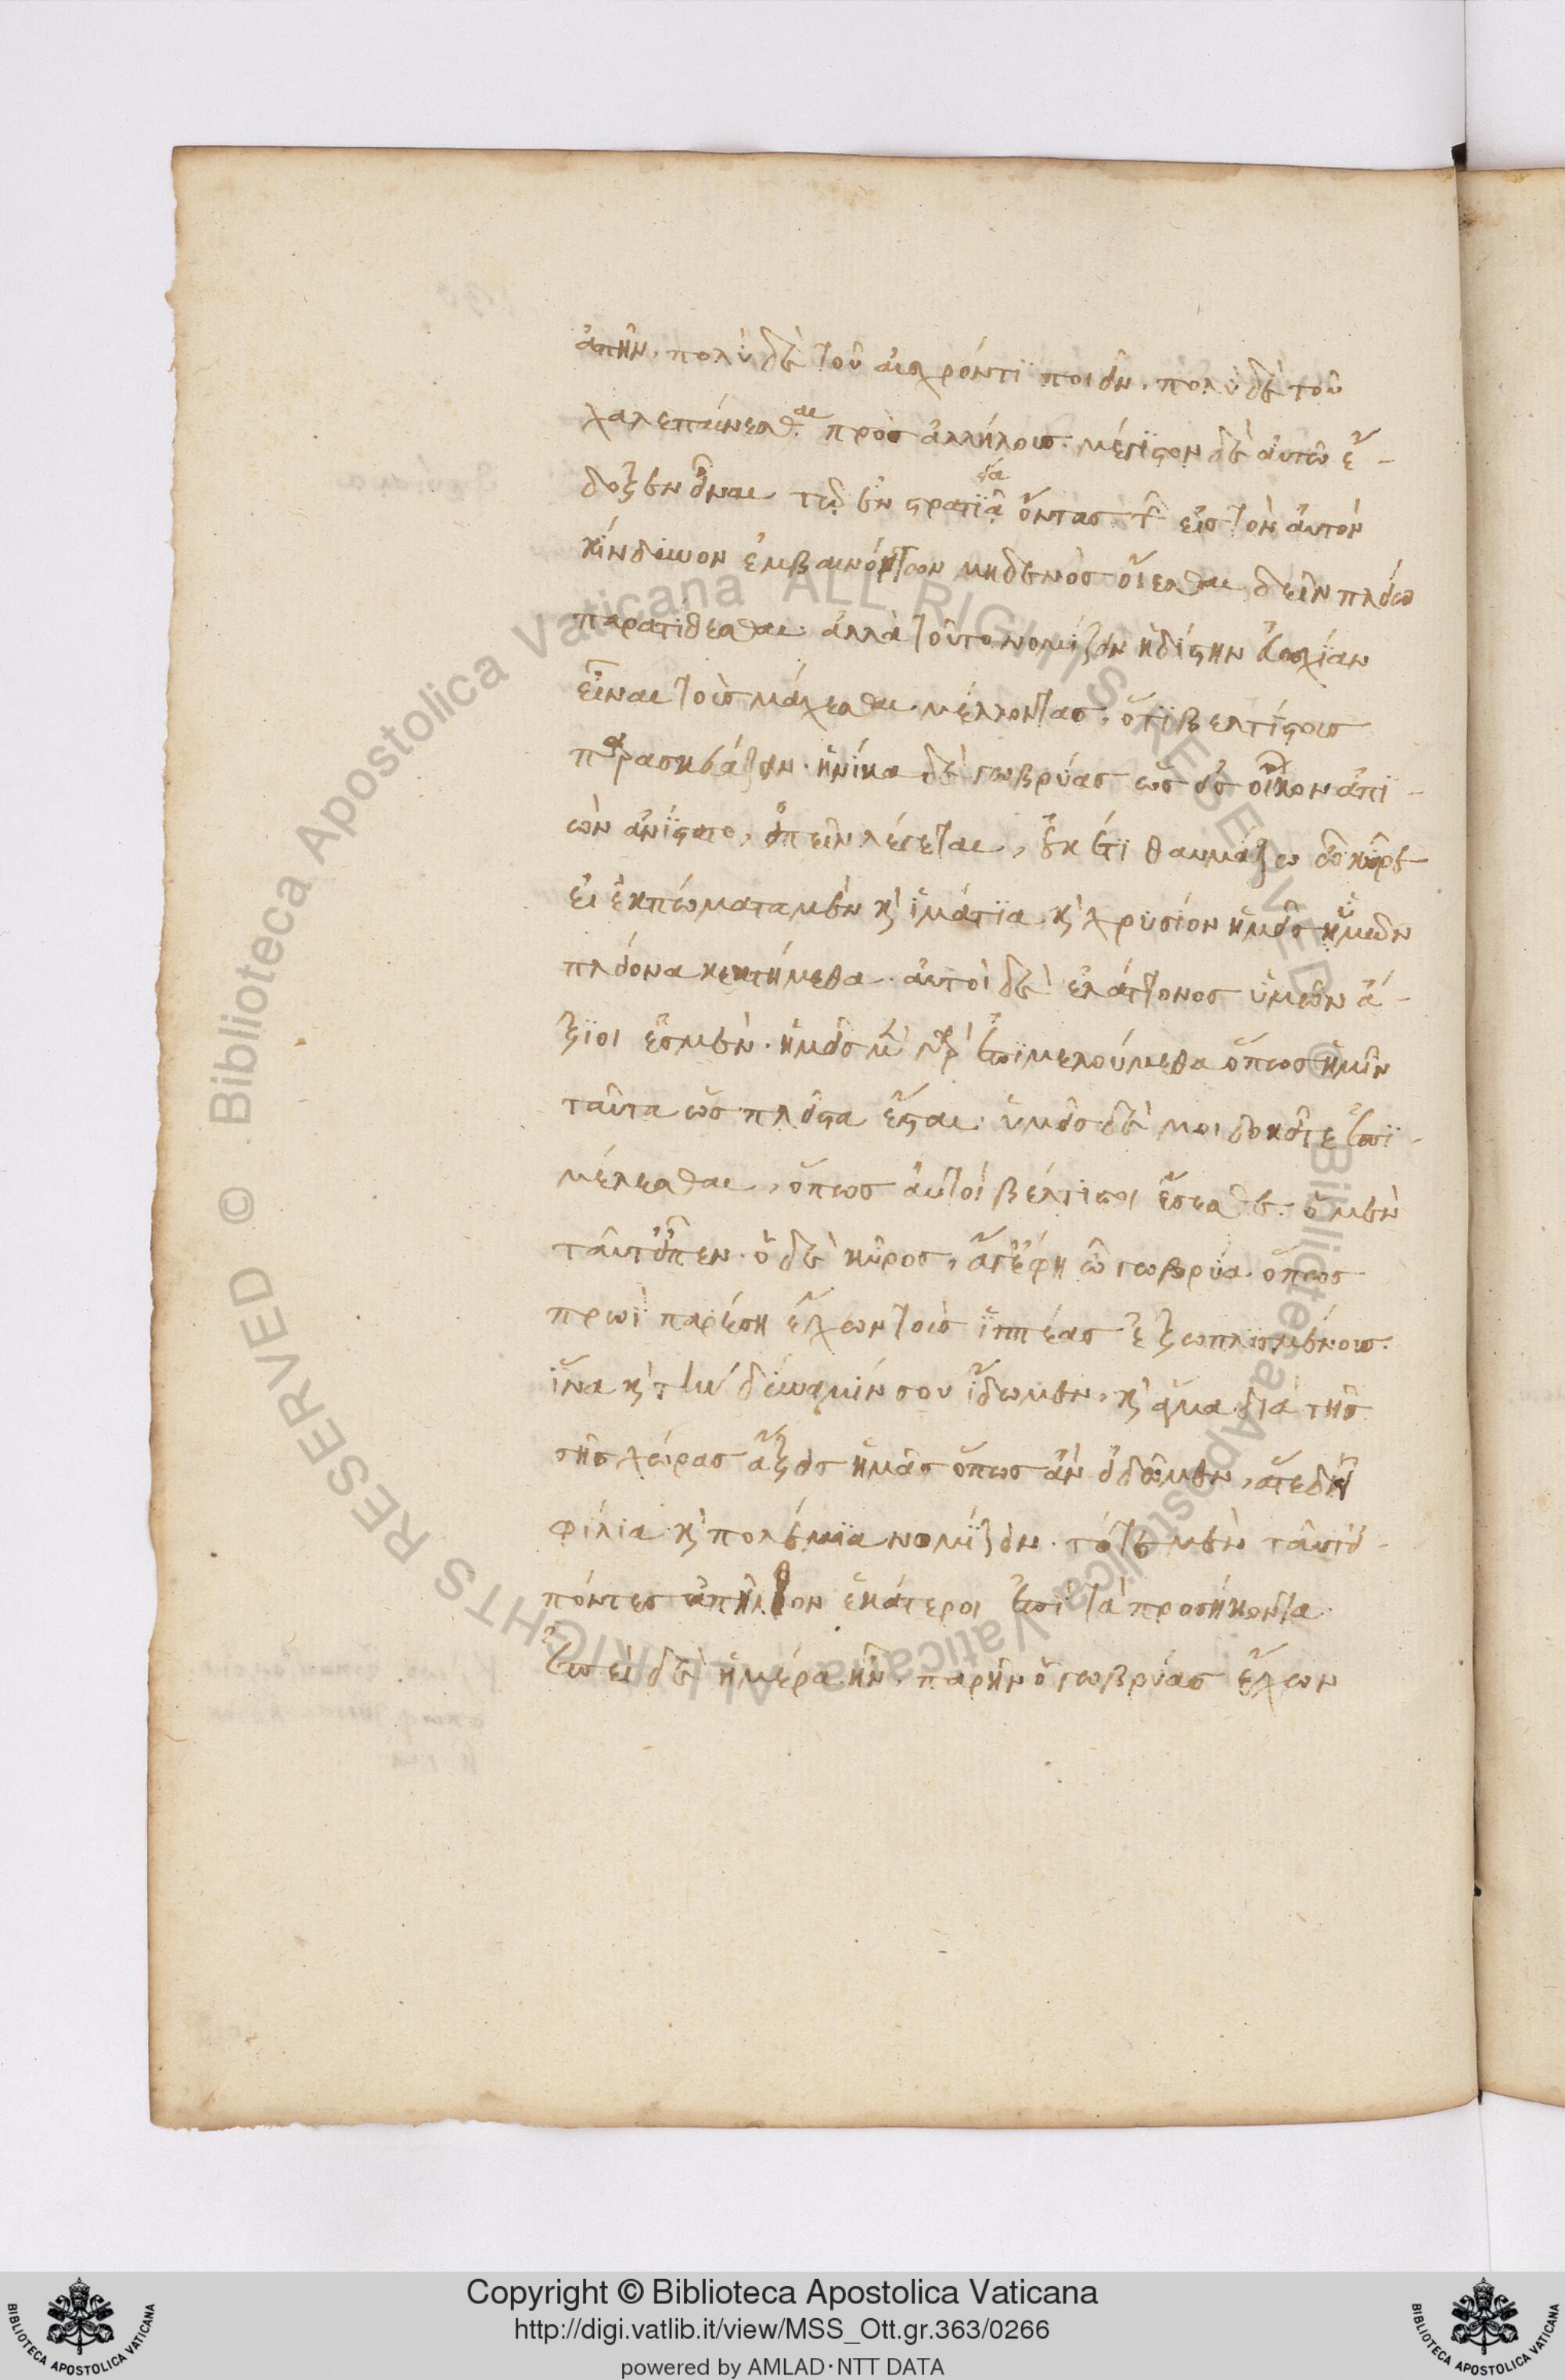 ἀπῆν. πολὺ δὲ τοῦ αἰσχρόν τι ποιεῖν. πολὺ δὲ τοῦ
χαλεπαίνεσθαι πρὸς ἀλλήλους. μέγιστον δὲ αὐτῶ ἔ-
δοξεν εἶναι τῶ ἐν στρατιᾶ ὄντας τ εἰς τὸν αὐτὸν
κίνδυνον ἐμβαινόντων μηδενὸς οἴεσθαι δεῖν πλείω
παρατίθεσθαι. ἀλλὰ τοῦτο νομίζειν ἡδίστην εὐωχίαν
εἶναι τοὺς μάχεσθαι μέλλοντας, ὅτι βελτίστους
παρασκευάζειν. ἡνίκα δὲ γωβρύας ὡς εἰς οἶκον ἀπι-
ὼν ἀνίστατο, εἰπεῖν λέγεται, οὐκέτι θαυμάζω ὦ κῦρε
εἰ ἐκπώματα μὲν κ ἱμάτια κ χρυσίον ἡμεῖς ὑμῶν
πλείονα κεκτήμεθα. αὐτοὶ δὲ ἐλάττονος ὑμῶν ἄ-
ξιοι ἐσμέν. ἡμεῖς μὲν γὰρ ἐπιμελούμεθα ὅπως ἡμῖν
ταῦτα ὡς πλεῖστα ἔσται. ὑμεῖς δὲ μοι δοκεῖτε ἐπι-
μέλεσθαι, ὅπως αὐτοὶ βέλτιστοι ἔσεσθε. ὁ μὲν
ταῦτ' εἶπεν. ὁ δὲ κῦρος, ἄγ' ἔφη ὦ γωβρύα ὅπως
πρωῒ παρέση ἔχων τοὺς ἱππέας ἐξωπλισμένους.
ἵνα κ τὴν δύναμίν σου ἴδωμεν, κ ἅμα διὰ τῆς
σῆς χώρας ἄξεις ἡμᾶς ὅπως ἂν εἰδῶμεν, ἅτε δεῖ
φιλια κ πολέμια νομίζειν. τότε μὲν ταῦτ' εἰ-
πόντες ἀπῆλθον ἑκάτεροι ἐπὶ τὰ προσήκοντα.
ἐπεὶ δὲ ἡμέρα ἦν, παρῆν ὁ γωβρύας ἔχων
Copyright © Biblioteca Apostolica Vaticana
http://digi.vatlib.it/view/MSS_Ott.gr.363/0266
powered by AMLAD·NTT DATA